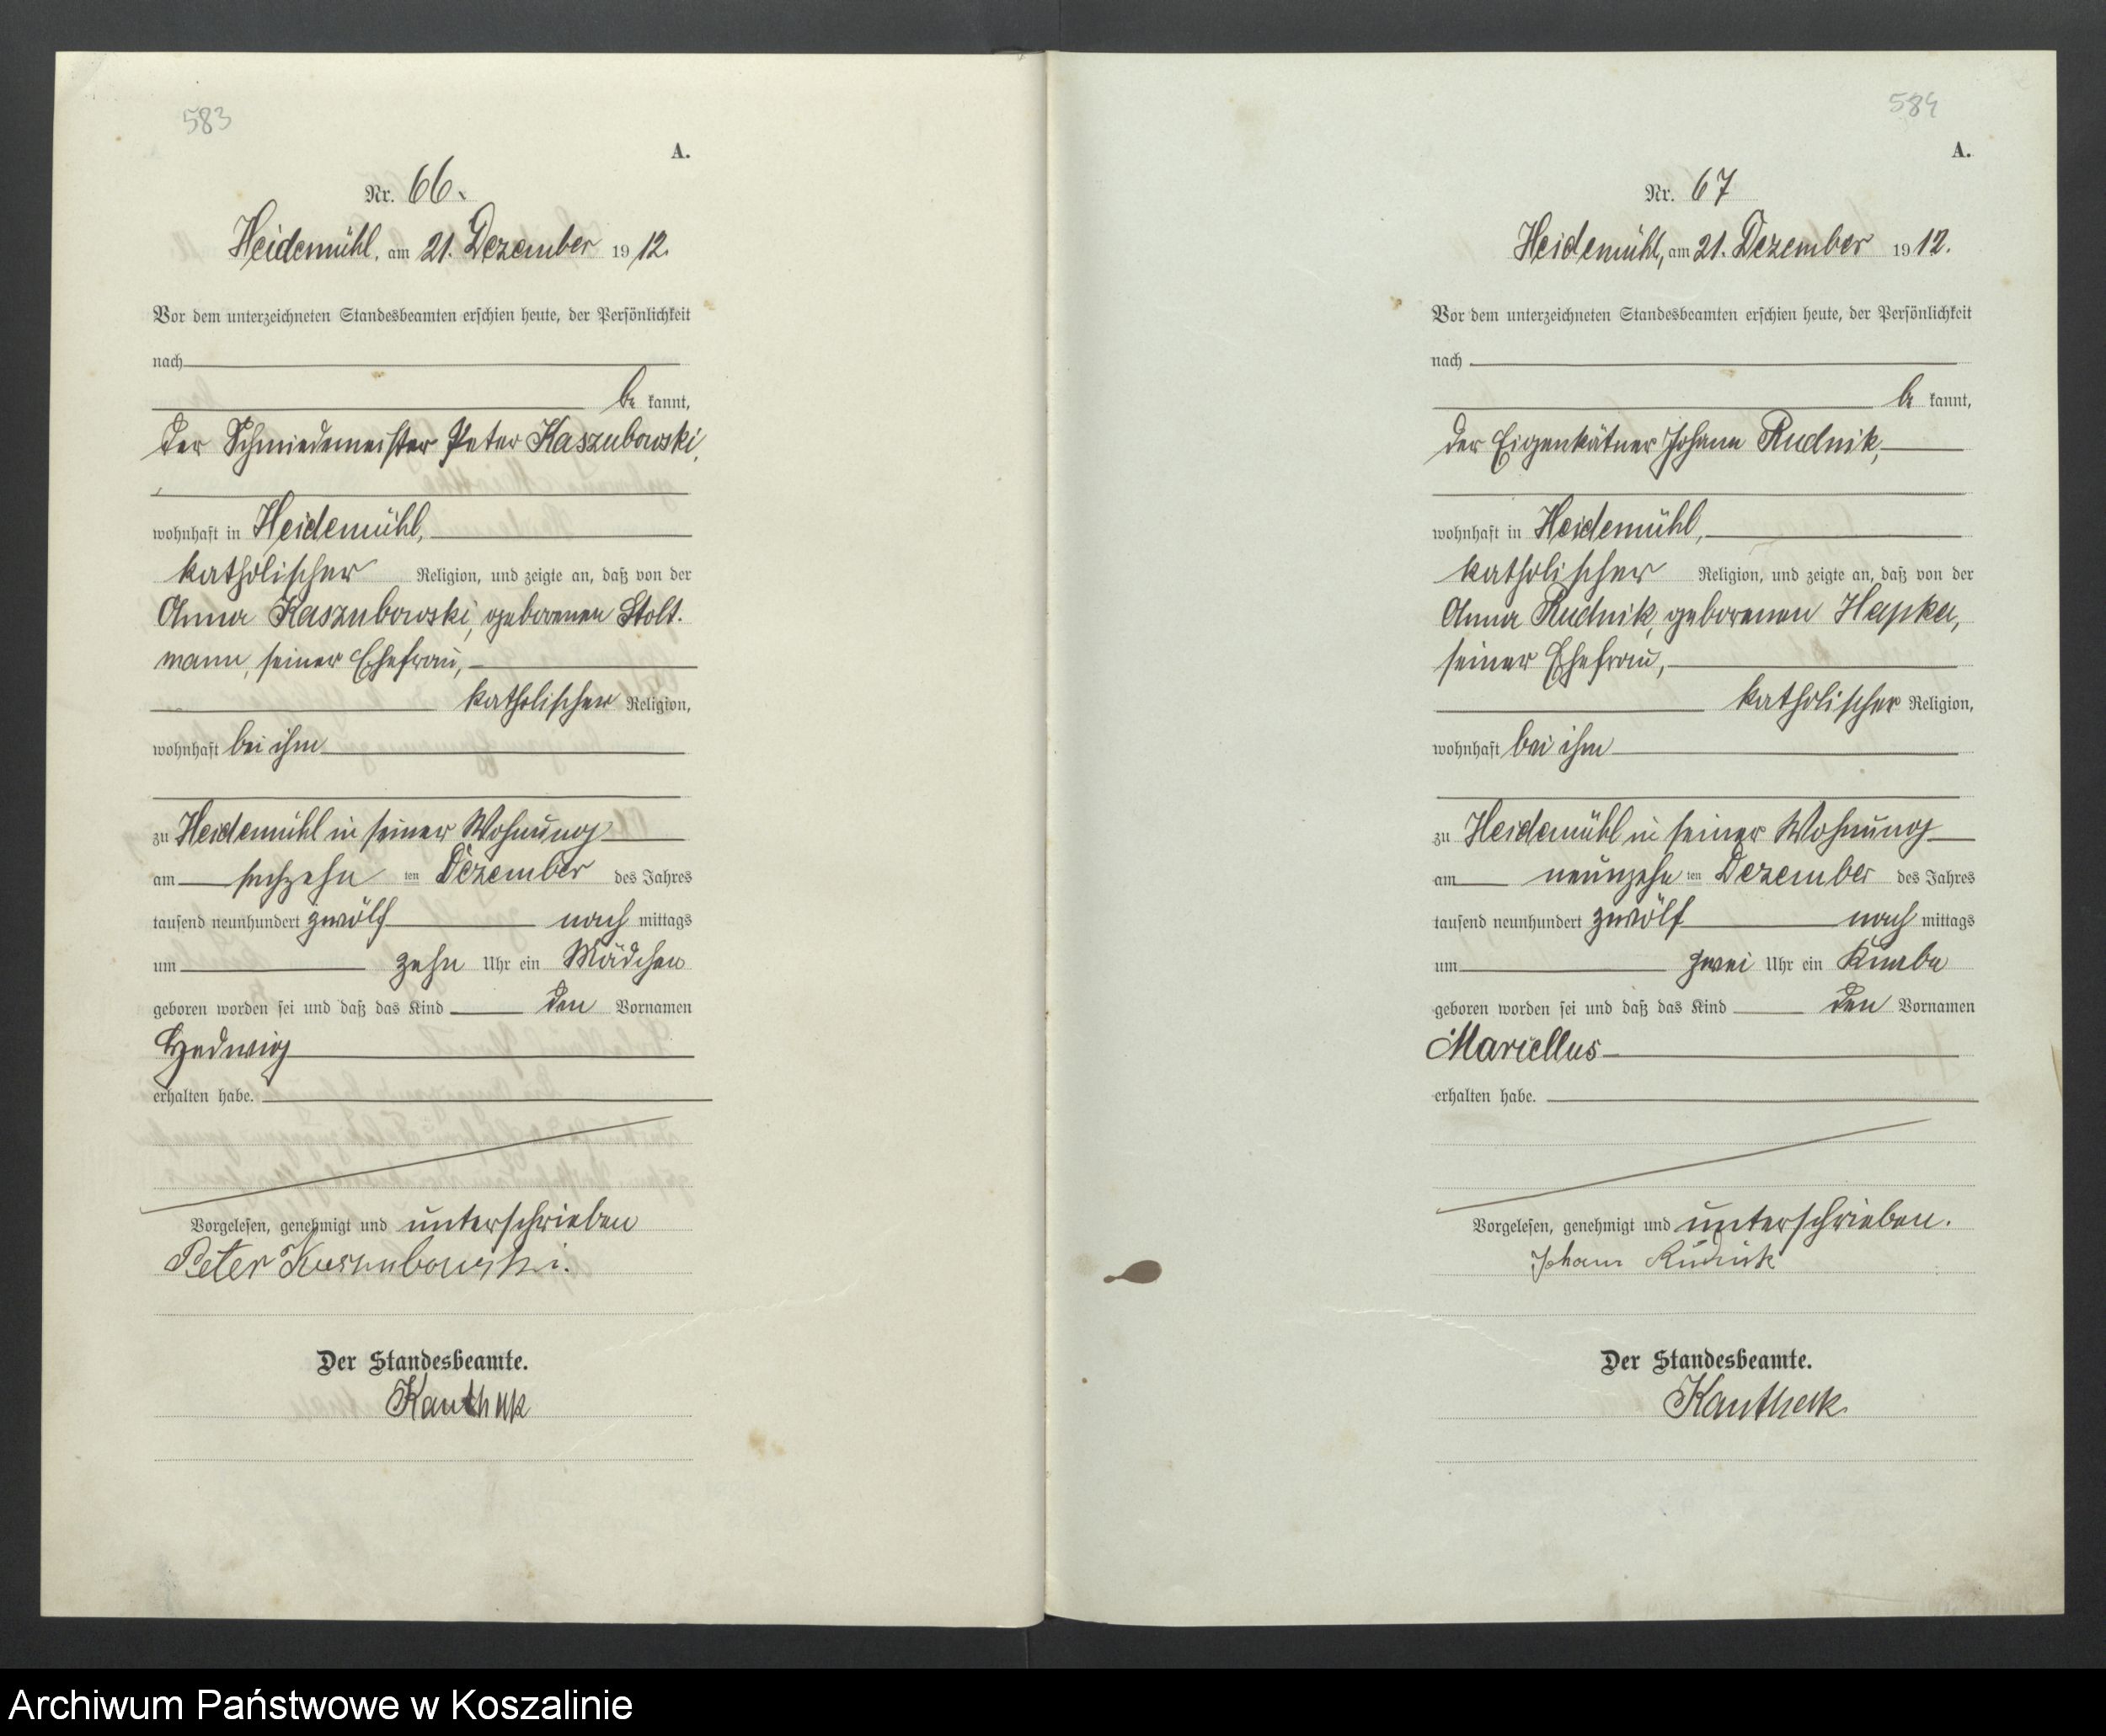 583
A.
Nr. 66.
Heidemühl, am 21. Dezember 1912.
Vor dem unterzeichneten Standesbeamten erschien heute, der Persönlichkeit
nach
be kannt,
der Schmiedemeister Peter Kaszubowski,
wohnhaft in Heidemühl,
katholischer Religion, und zeigte an, daß von der
Anna Kaszubowski, geborenen Stolt-
mann, seiner Ehefrau,
katholischer Religion,
wohnhaft bei ihm
zu Heidemühl in seiner Wohnung
am sechzehn ten Dezember des Jahres
tausend neunhundert zwölf nach mittags
um zehn Uhr ein Mädchen
geboren worden sei und daß das Kind den Vornamen
Hedwig
erhalten habe.
Vorgelesen, genehmigt und unterschrieben
Peter Kaszubowski.
Der Standesbeamte.
Kanthak
584
A.
Nr. 67
Heidemühl, am 21. Dezember 1912.
Vor dem unterzeichneten Standesbeamten erschien heute, der Persönlichkeit
nach
be kannt,
der Eigenkätner Johann Rudnik,
wohnhaft in Heidemühl,
katholischer Religion, und zeigte an, daß von der
Anna Rudnik, geborenen Hapka,
seiner Ehefrau,
katholischer Religion,
wohnhaft bei ihm
zu Heidemühl in seiner Wohnung
am neunzehn ten Dezember des Jahres
tausend neunhundert zwölf nach mittags
um zwei Uhr ein Knabe
geboren worden sei und daß das Kind den Vornamen
Maricllus
erhalten habe.
Vorgelesen, genehmigt und unterschrieben.
Johann Rudnik
Der Standesbeamte.
Kanthak
Archiwum Państwowe w Koszalinie